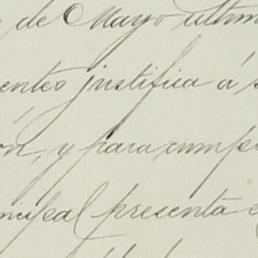 de Mayo ultim
entes justifica á s
ón, y para cumpl
nicipal presenta e